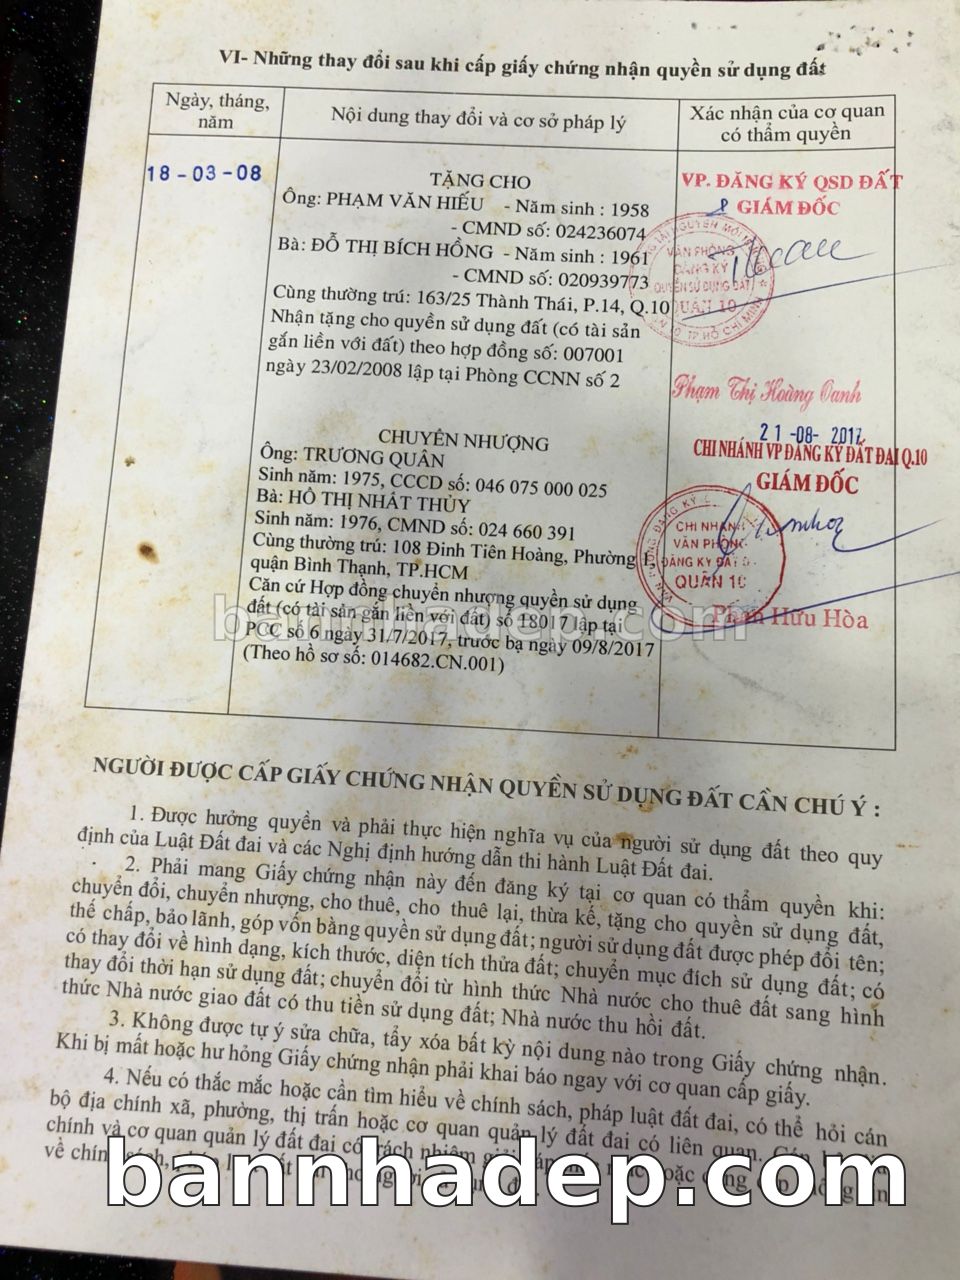 VI- Những thay đổi sau khi cấp giấy chứng nhận quyền sử dụng đất
Ngày, tháng, năm
Nội dung thay đổi và cơ sở pháp lý
Xác nhận của cơ quan có thẩm quyền
18-03-08
TẶNG CHO
Ông: PHẠM VĂN HIẾU - Năm sinh : 1958
- CMND số: 024236074
Bà: ĐỖ THỊ BÍCH HỒNG - Năm sinh : 1961
- CMND số: 020939773
Cùng thường trú: 163/25 Thành Thái, P.14, Q.10
Nhận tặng cho quyền sử dụng đất (có tài sản
gắn liền với đất) theo hợp đồng số: 007001
ngày 23/02/2008 lập tại Phòng CCNN số 2
VP. ĐĂNG KÝ QSD ĐẤT
GIÁM ĐỐC
VĂN PHÒNG
ĐĂNG KÝ
QUYỀN SỬ DỤNG ĐẤT
QUẬN 10
Phạm Thị Hoàng Oanh
CHUYỂN NHƯỢNG
Ông: TRƯƠNG QUÂN
Sinh năm: 1975, CCCD số: 046 075 000 025
Bà: HỒ THỊ NHẤT THỦY
Sinh năm: 1976, CMND số: 024 660 391
Cùng thường trú: 108 Đinh Tiên Hoàng, Phường 1,
quận Bình Thạnh, TP.HCM
Căn cứ Hợp đồng chuyển nhượng quyền sử dụng
đất (có tài sản gắn liền với đất) số 18017 lập tại
PCC số 6 ngày 31/7/2017, trước bạ ngày 09/8/2017
(Theo hồ sơ số: 014682.CN.001)
21-08-2017
CHI NHÁNH VP ĐĂNG KÝ ĐẤT ĐAI Q.10
GIÁM ĐỐC
CHI NHÁNH
VĂN PHÒNG
ĐĂNG KÝ ĐẤT Đ
QUẬN 10
Phan Hữu Hòa
bannhadep.com
NGƯỜI ĐƯỢC CẤP GIẤY CHỨNG NHẬN QUYỀN SỬ DỤNG ĐẤT CẦN CHÚ Ý :
1. Được hưởng quyền và phải thực hiện nghĩa vụ của người sử dụng đất theo quy
định của Luật Đất đai và các Nghị định hướng dẫn thi hành Luật Đất đai.
2. Phải mang Giấy chứng nhận này đến đăng ký tại cơ quan có thẩm quyền khi:
chuyển đổi, chuyển nhượng, cho thuê, cho thuê lại, thừa kế, tặng cho quyền sử dụng đất,
thế chấp, bảo lãnh, góp vốn bằng quyền sử dụng đất; người sử dụng đất được phép đổi tên;
có thay đổi về hình dạng, kích thước, diện tích thửa đất; chuyển mục đích sử dụng đất; có
thay đổi thời hạn sử dụng đất; chuyển đổi từ hình thức Nhà nước cho thuê đất sang hình
thức Nhà nước giao đất có thu tiền sử dụng đất; Nhà nước thu hồi đất.
3. Không được tự ý sửa chữa, tẩy xóa bất kỳ nội dung nào trong Giấy chứng nhận.
Khi bị mất hoặc hư hỏng Giấy chứng nhận phải khai báo ngay với cơ quan cấp giấy.
4. Nếu có thắc mắc hoặc cần tìm hiểu về chính sách, pháp luật đất đai, có thể hỏi cán
bộ địa chính xã, phường, thị trấn hoặc cơ quan quản lý đất đai có liên quan.
chính và cơ quan quản lý đất đai có trách nhiệm
về chính sách,
bannhadep.com